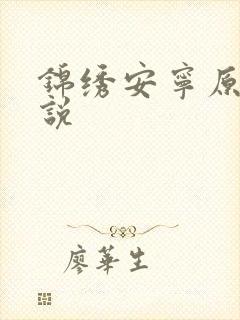 錦绣安寧原
說
廖華生